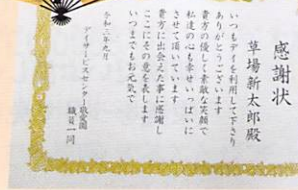 感謝状
草場新太郎殿
いつもデイを利用して下さり
ありがとうございます
貴方の優しく素敵な笑顔で
私達の心も幸せいっぱいに
させて頂いています
貴方に出会えた事に感謝し
ここにその意を表します
いつまでもお元気で
令和三年九月
デイサービスセンター敬愛園
職員一同